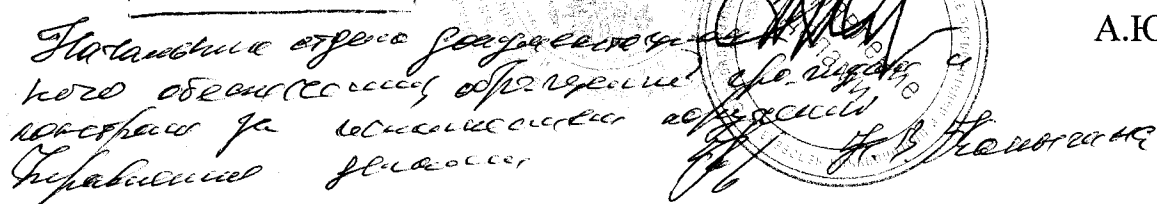 А.Ю
Начальник отдела документацион
ного обеспечения, обращений граждан и
контроля за исполнением поручений
Управления делами Н.В.